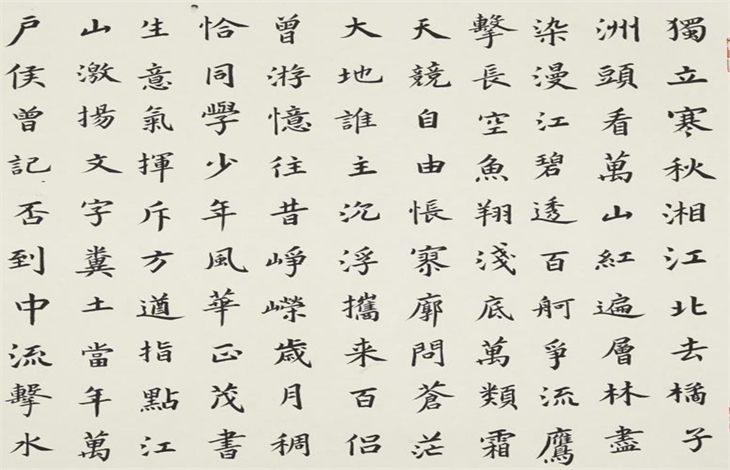 獨立寒秋湘江北去橘子
洲頭看萬山紅遍層林盡
染漫江碧透百舸爭流鷹
擊長空魚翔淺底萬類霜
天競自由悵寥廓問蒼茫
大地誰主沉浮攜来百侶
曾游憶往昔崢嶸歲月稠
恰同學少年風華正茂書
生意氣揮斥方遒指點江
山激揚文字糞土當年萬
戶侯曾記否到中流擊水